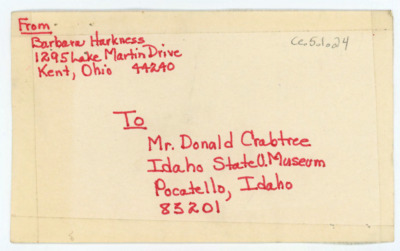 From
Barbara Harkness
1295 Lake Martin Drive
Kent, Ohio 44240
To
Mr. Donald Crabtree
Idaho State U. Museum
Pocatello, Idaho
83201